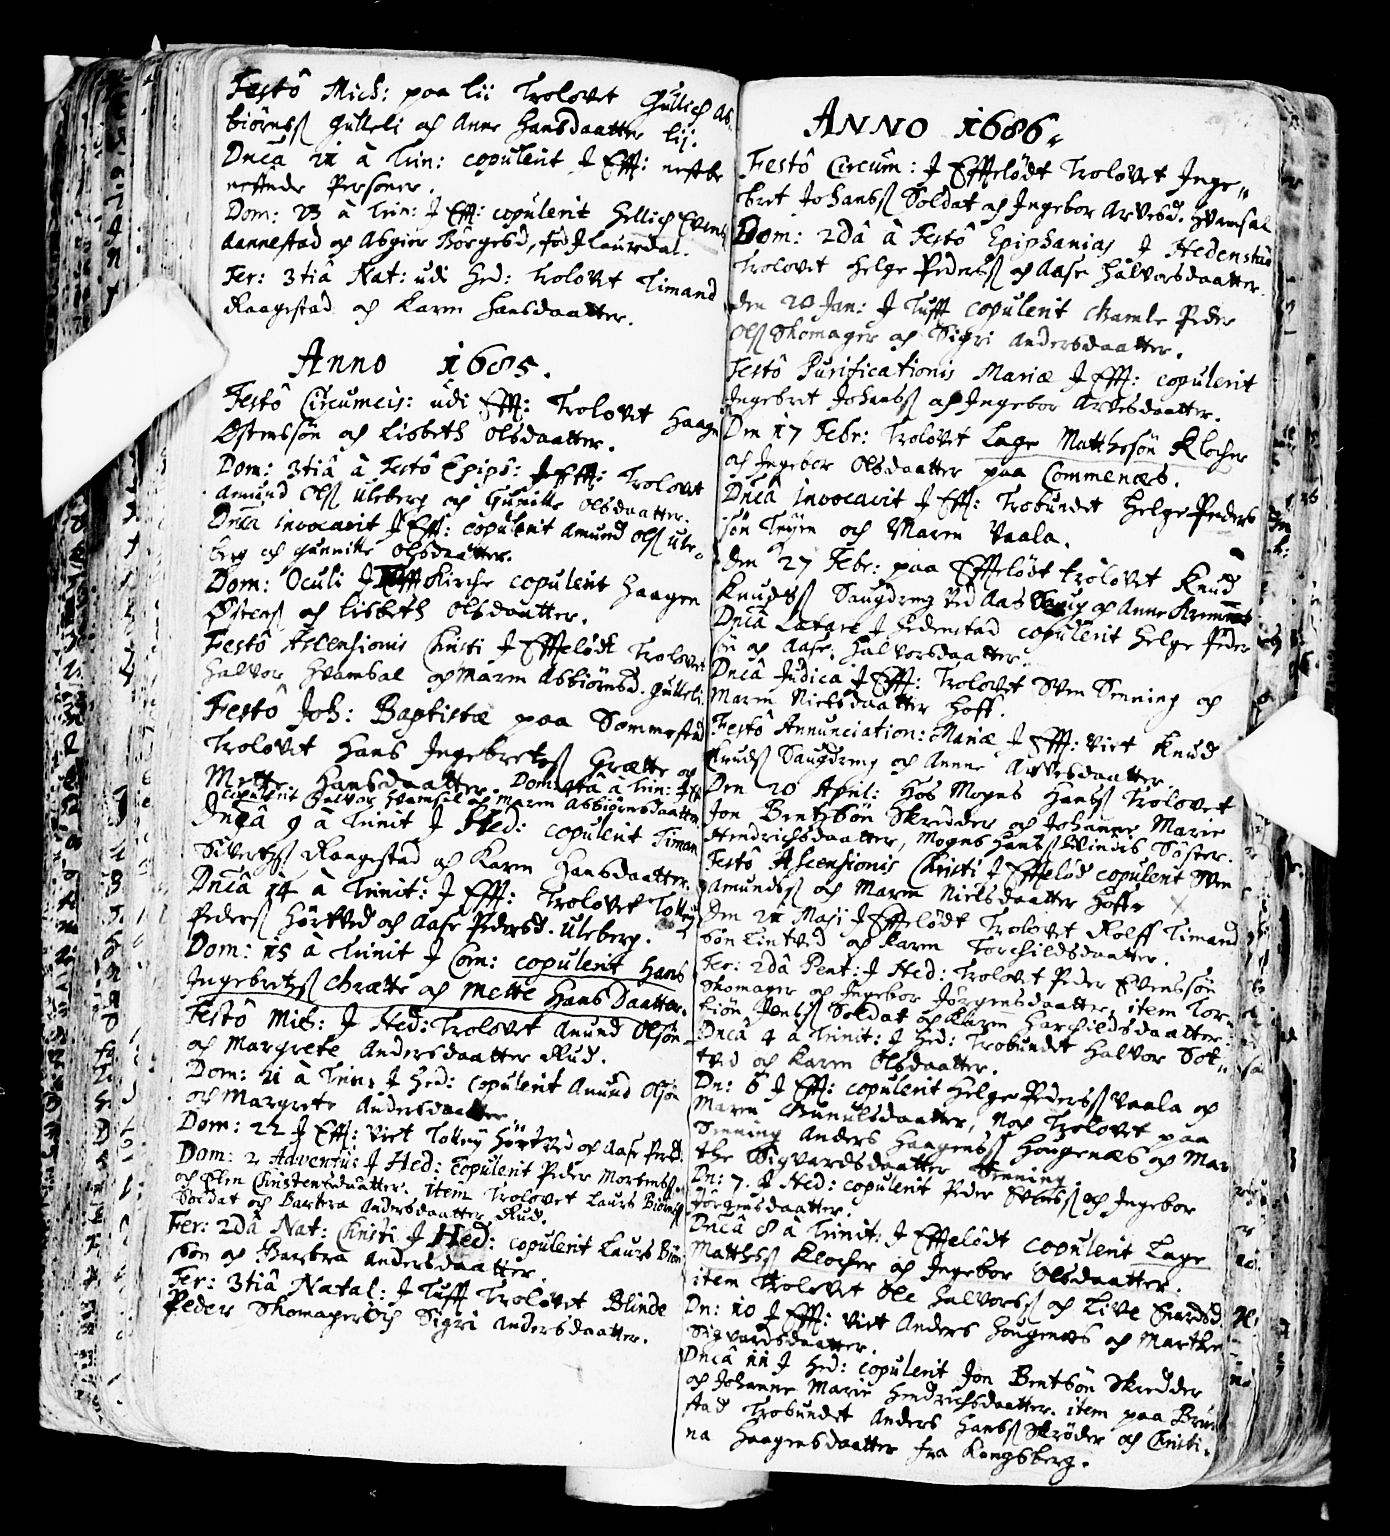 Festô Mich: paa Lii Trolovet Gullich As-
biörnsß Gulleli och Anne Hansdaatter Lij.
Dncâ 21 à Trin: copulerit J Efft: nestbe
neffnde Personer.
Dom: 23 à Trin: J Eft: copulerit Hellich Evens
Aannestad och Asgier Börgesd, fød J Laurdal.
Fer: 3tiâ Nat: udi Hed: Trolovt Timand
Raagestad och Karen Hansdaatter.
Anno 1685.
Festô Circumcis: udi Efft: Trolovet Haagn
Østenssön och Lisbeth Olsdaatter.
Dom: 3tiâ à Festô Epiph: J Efft: Trolovet
Amund Olß Uleberg och Gunille Olsdaatter.
Dncâ invocavit J Eff: copulerit Amund Olß Ule-
berg och Gunnille Olsdaatter.
Dom: Oculi J Tufft Kirche copulerit Haagen
Østensß och Lisbeth Olsdaatter.
Festô Ascensionis Christi J Effteløedt Trolovet
Halvor Hvamsal och Maren Asbiörnsd. Gulleli.
Festô Joh: Baptistæ paa Sommestad
Trolovet Hans Ingebretsß Grætte och
Mette Hansdaatter. Dom: à Trin: J Eft
copulerit Halvor Hvamsal och Maren Asbiörnsdaatter
Dncâ 9 à Trinit J Hed: copulerit Timan
Sivertsß Raagestad och Karen Hansdaatter.
Dncâ 14 à Trinit: J Efft: Trolovet Tolley
Pedersß Hörtved och Aase Pedersd. Uleberg.
Dom: 15 à Trinit J Com: copulerit Hans
Ingebretsß Grætte och Mette Hans Daatter.
Festô Mich: J Hed: Trolovet Anund Olsøn
och Margrete Andersdaatter Rud.
Dom: 21 à Trin: J Hed: copulerit Anund Olsøn
och Margrete Andersdaatter
Dom: 22 J Eff: Viet Tolley Hörtved och Aase Pedsd.
Dom: 2 Adventus J Hed: copulerit Peder Mortensß
och Elen Christensdaatter. item Trolovet Laurs Biörnsß
Soldat och Barbra Andersdaatter Rud.
Fer: 2dâ Nat: Christi J Hed: copulerit Laurs Biörn
sön och Barbra Andersdaatter.
Fer: 3tiâ Natal: J Tufft Trolovet Blinde
Peder Skomager Och Sigri Andersdaatter.
ANNO 1686.
Festô Circum: J Effteløedt Trolovet Inge-
bret Johansß Soldat och Ingebor Arvesd. Hvamsal
Dom: 2dâ à Festô Epiphanias J Hedenstad
Trolovet Helge Pedersß och Aase Halvorsdaatter.
Den 20 Jan: J Tufft copulerit Gamle Peder
Olß Skomager och Sigri Andersdaatter.
Festô Purificationis Mariæ J Efft: copulerit
Ingebret Johansß och Ingebor Arvesdaatter.
Den 17 Febr: Trolovet Lage Matthssön Klocher
och Ingebor Olsdaatter paa Commenæs.
Dncâ invocavit J Eff: Trobundet Helge Peders
sön Teyen och Maren Vaala.
Den 27 Febr: paa Effteløedt trolovet Knud
Knudsß Saugdreng Ved Aas Saug och Anne
Dncâ Lætare J Hedenstad copulerit Helge Peder
sön och Aase Halvorsdaatter.
Dncâ Judica J Efft: Trolovet Sven Senning och
Maren Nielsdaatter Hoff.
Festô Annunciation: Mariæ J Efft: Viet Knud
Knudsß Saugdreng och Anne Arvesdaatter
Den 20 April: Hos Mogns Hansß Trolovet
Jon Bentssön Skredder och Johanne Marie
Hendrichsdaatter, Mogns Hansß Qvindis Söster.
Festô Ascensionis Christi J Effteløed copulerit Sven
Amundsß och Maren Nielsdaatter Hoff.
Den 21 Maji J Effteløedt Trolovet Rolff Timand
sön Lintvid och Karen Torchildsdaatter.
Fer: 2dâ Pent: J Hed: Trolovet Peder Evenssön
Skomager och Ingebor Jörgensdaatter, item Torn
biön Jensß Soldat och Karen Harchildsdaatter.
Dncâ 4 à Trinit: J Hed: Trobundet Halvor Sot-
tved och Karen Olsdaatter.
Dn: 6 J Efft: copulerit Helge Pedersß Vaala och
Maren Gunulsdaatter, Noch Trolovet paa
Senning Anders Haagensß Hougenæs och Mar
the Sigvardsdaatter Senning.
Dn: 7. J Hed: copulerit Peder Evensß och Ingebor
Jörgensdaatter.
Dncâ 8 à Trinit: J Effteløedt copulerit Lage
Matthsß Klocher och Ingebor Olsdaatter.
item Trolovet Ole Halvorsß och Live Evardsd.
Dn: 10 J Efft: Viet Anders Hougenæs och Marthe
Sigvardsdaatter.
Dncâ 11 J Hed: copulerit Jon Bentsön Skredder
och Johanne Marie Hendrichsdaatter. item paa Brun
stad Trobundet Anders Hansß Skröder och Christi-
na Haagensdaatter fra Kongsberg.